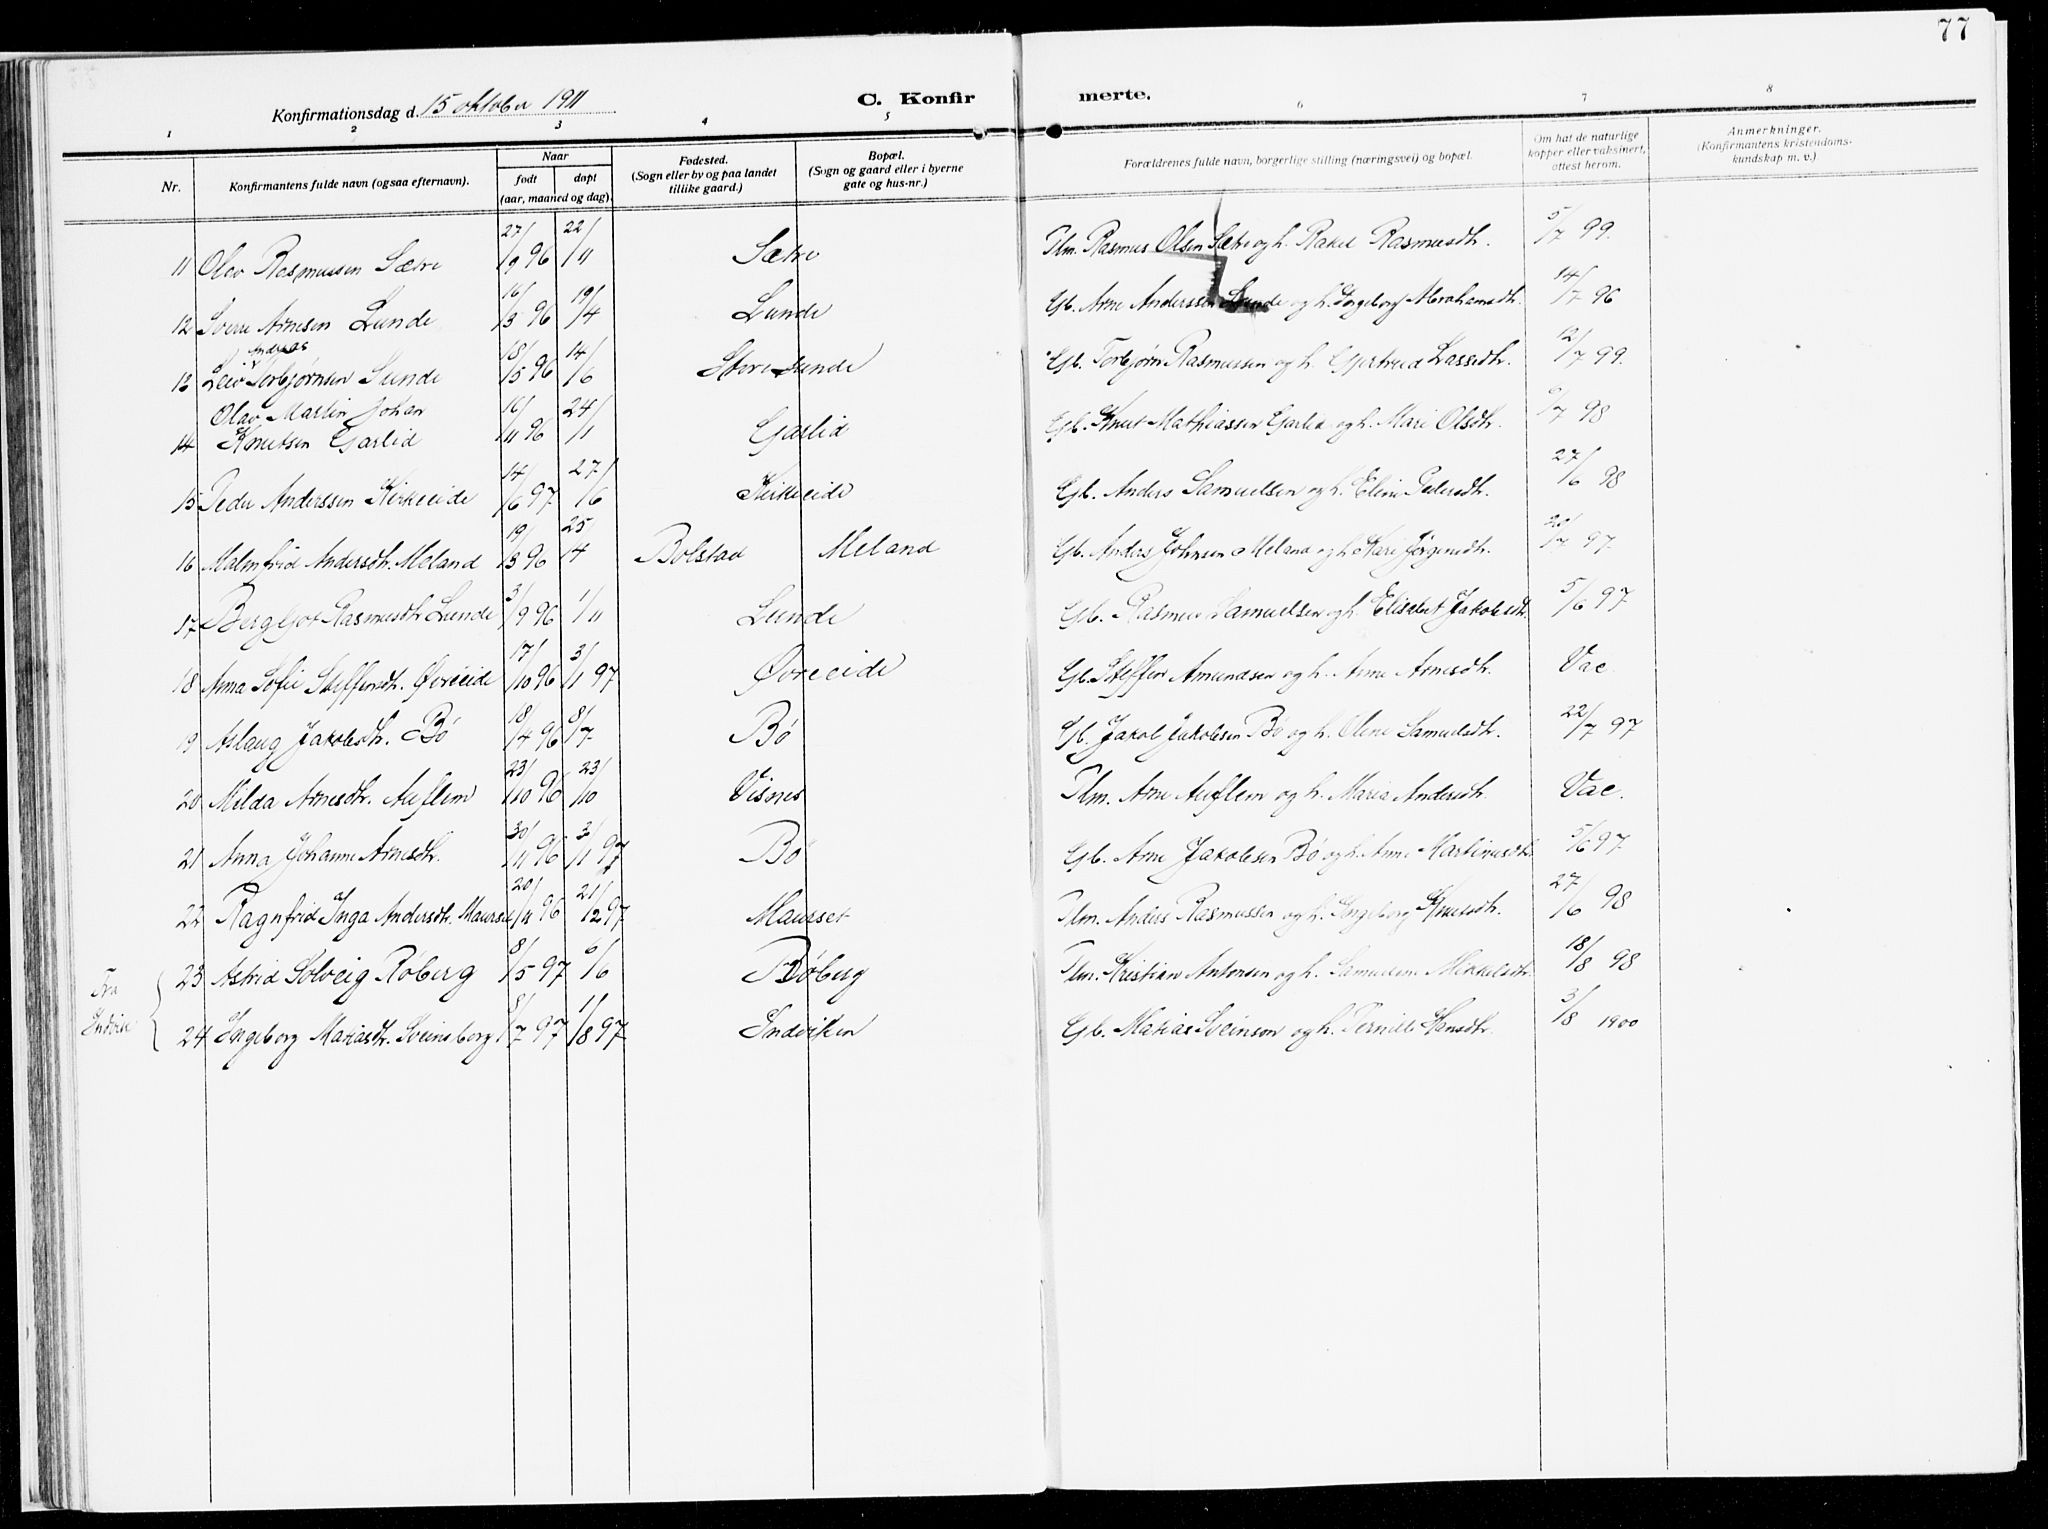 77
Konfirmationsdag d. 15 oktober 1911 C. Konfir merte.
1 2 3 4 5 6 7 8
Nr. Konfirmantens fulde navn (ogsaa efternavn). Naar født døpt (aar, maaned og dag). Fødested. (Sogn eller by og paa landet tillike gaard.) Bopæl. (Sogn og gaard eller i byerne gate og hus-nr.) Forældrenes fulde navn, borgerlige stilling (næringsvei) og bopæl. Om hat de naturlige kopper eller vaksinert, attest herom. Anmerkninger. (Konfirmantens kristendoms-kundskap m. v.)
11 Olav Rasmussen Sætre 27/9 96 22/11 Sætre Tlm. Rasmus Olsen Sætre og h. Rakel Rasmusdtr. 5/7 99.
12 Sverre Arnesen Lunde 16/3 96 19/4 Lunde Gb. Arne Anderssen Lunde og h. Ingeborg Abrahamsdtr. 14/7 96
Andreas
13 Leiv Torbjørnsen Sunde 18/5 96 14/6 Storesunde Gb. Torbjørn Rasmussen og h. Gjertrud Lassedtr. 12/7 99.
Olav Martin Johan
14 Knutsen Garlid 16/11 96 24/1 Garlid Gb. Knut Mathiassen Garlid og h. Mari Olsdtr. /7 98
15 Peder Anderssen Kirkeeide 14/6 97 27/6 Kirkeeide Gb. Anders Samuelsen og h. Eline Pedersdtr. 27/6 98
16 Malmfrid Andersdtr. Meland 19/3 96 25/4 Bolstad Meland Gb. Anders Johnsen Meland og h. Kari Jørgensdtr. 20/7 97.
17 Bergljot Rasmusdtr. Lunde 3/9 96 1/11 Lunde Gb. Rasmus Samuelsen og h. Elisabet Jakobsdtr. 5/6 97
18 Anna Sofie Steffensdtr. Øvreeide 17/10 96 3/1 97 Øvreeide Gb. Steffen Amundsen og h. Anne Arnesdtr. Vac.
19 Aslaug Jakobsdtr. Bø 18/4 96 8/7 Bø Gb. Jakob Jakobsen Bø og h. Oline Samuelsdtr. 22/7 97
20 Milda Arnesdtr. Auflem 23/10 96 23/10 Visnes Tlm. Arne Auflem og h. Maria Andersdtr. Vac.
21 Anna Johanne Arnesdtr. 30/11 96 3/1 97 Bø Gb. Arne Jakobsen Bø og h. Anne Martinusdtr. 5/6 97
22 Ragnfrid Inga Andersdtr. Maurset 20/11 96 21/12 97 Maurset Tlm. Anders Rasmussen og h. Ingeborg Knutsdtr. 27/6 98
Fra
23 Astrid Solveig Røberg 8/5 97 6/6 Røberg Tlm. Kristian Antonsen og h. Samueline Mikkelsdtr. 18/8 98
24 Ingeborg Matiasdtr. Sveinsborg 8/7 97 1/8 97 Indviken Gb. Matias Sveinson og h. Pernille Hansdtr. 3/8 1900